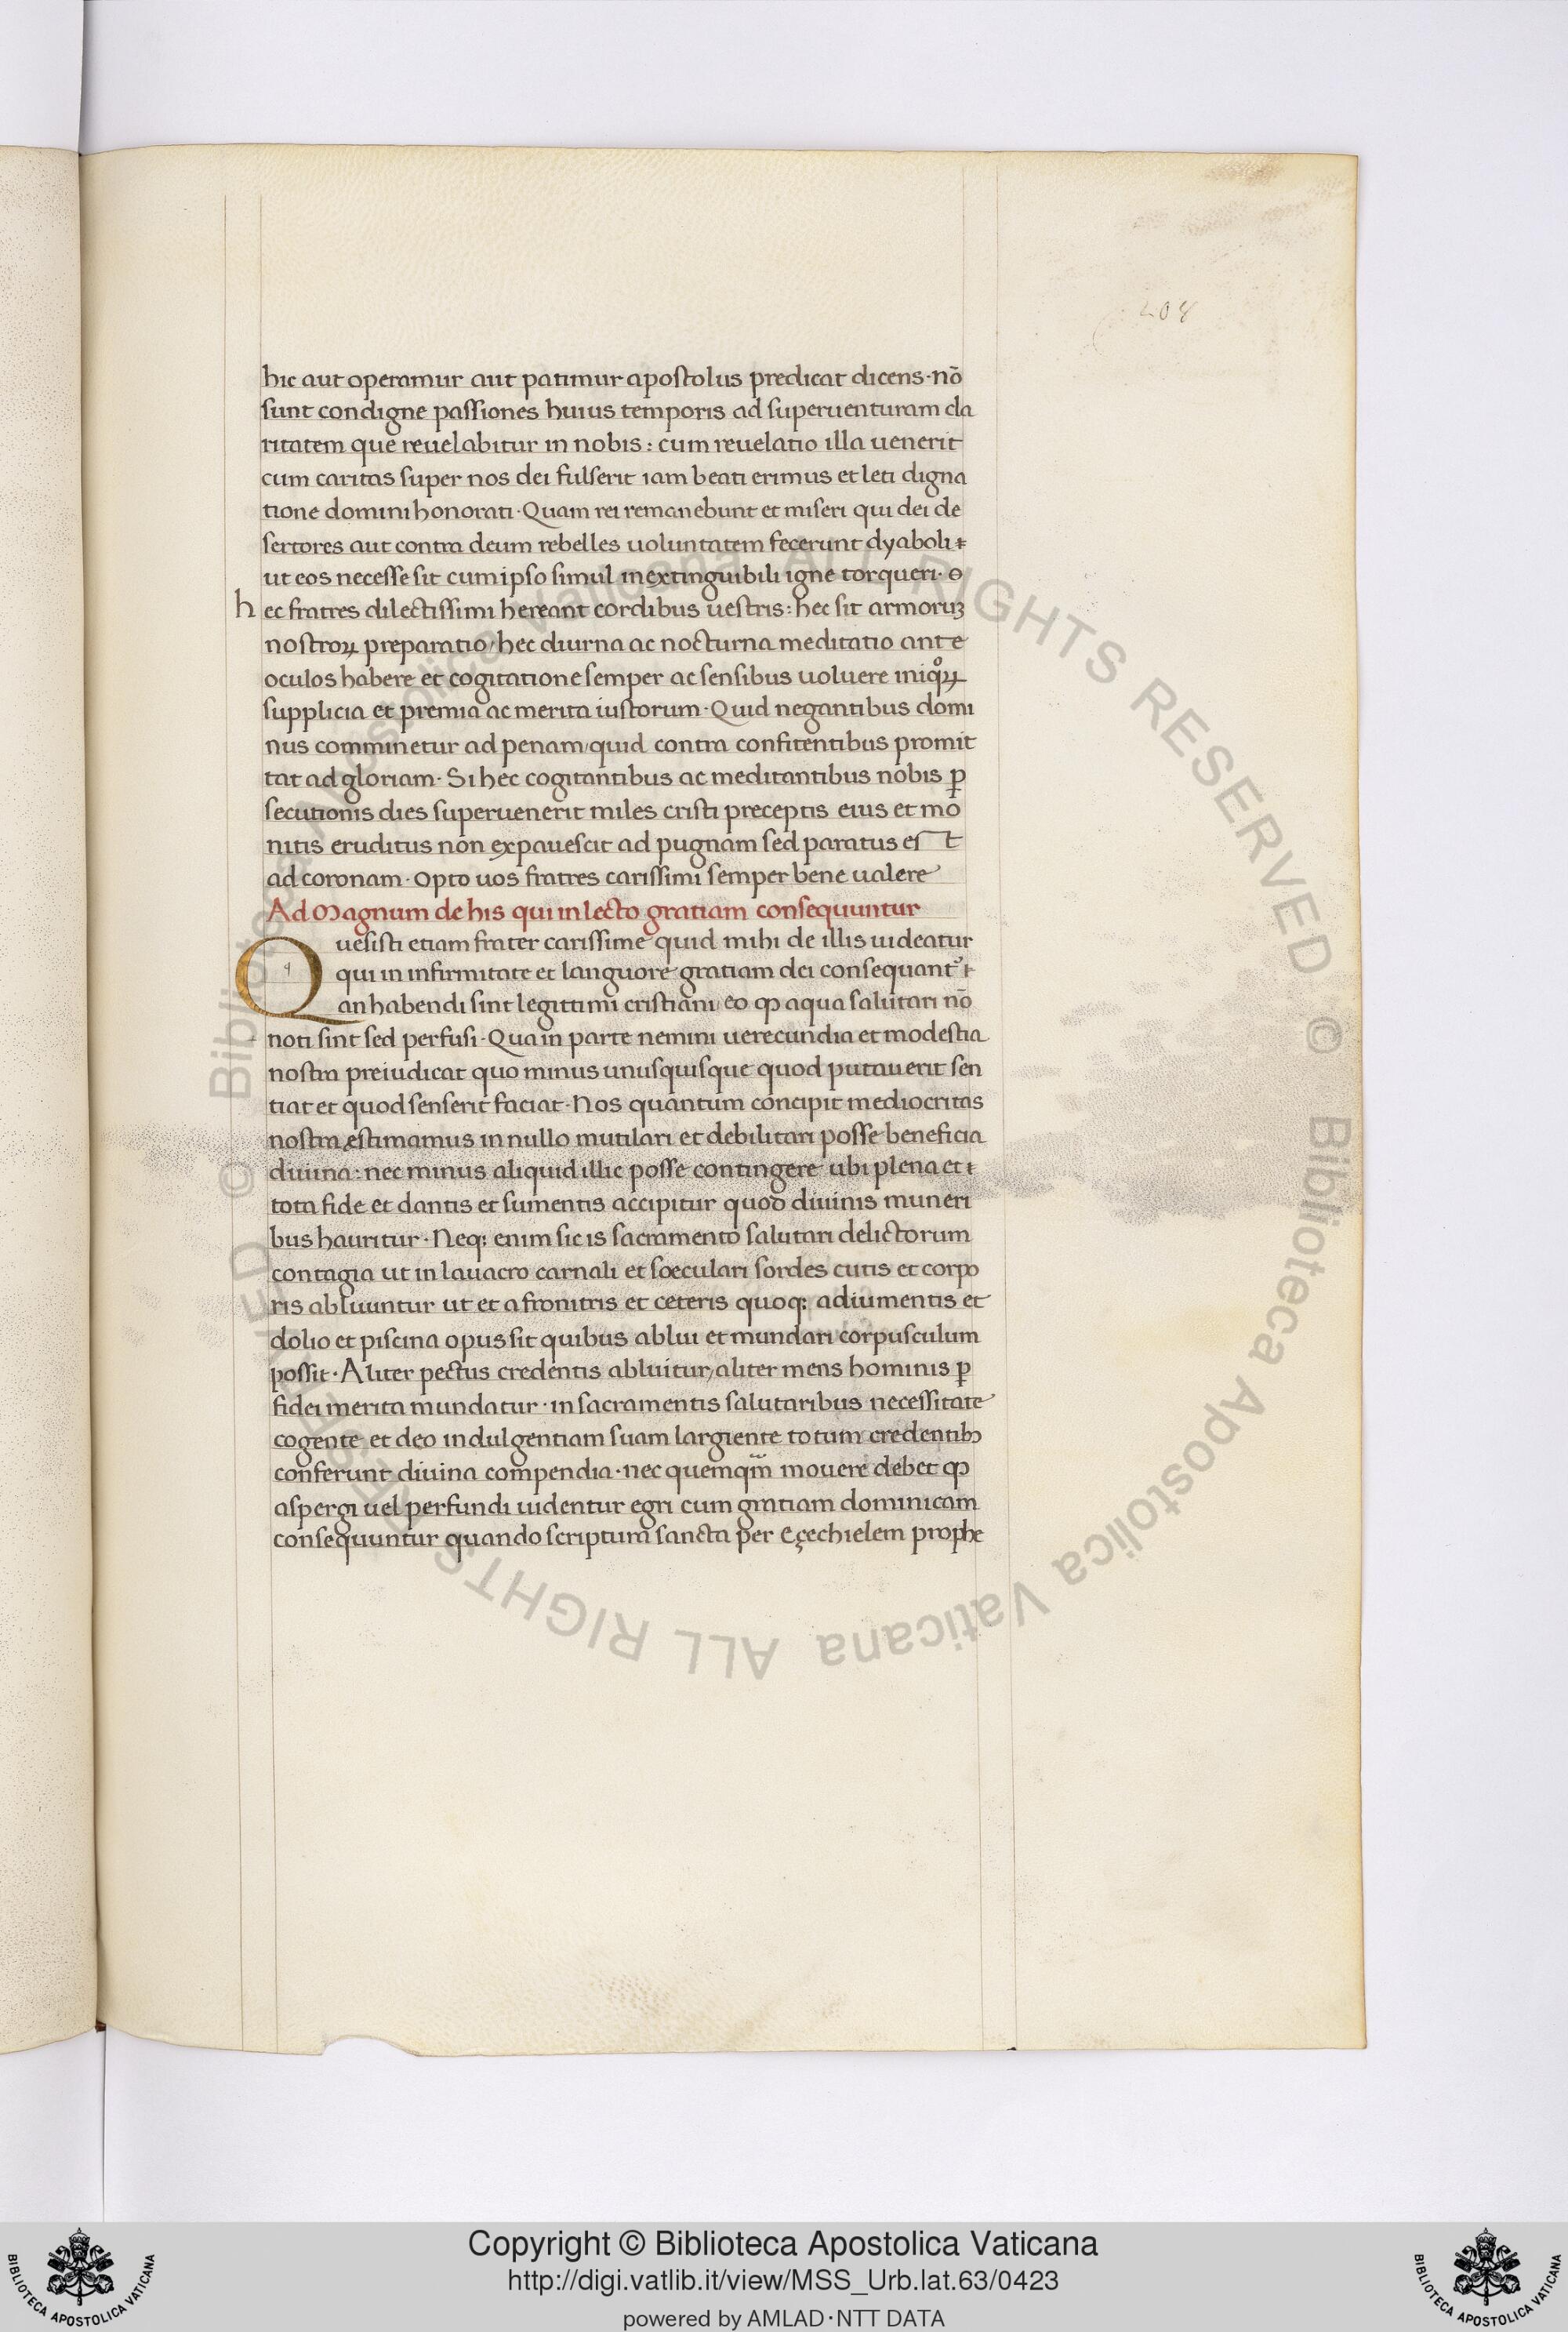 208
hic aut operamur aut patimur apostolus predicat dicens·nō
sunt condigne passiones huius temporis ad superuenturam cla
ritatem que reuelabitur in nobis: cum reuelatio illa uenerit
cum caritas super nos dei fulserit iam beati erimus et leti digna
tione domini honorati·Quam rei remanebunt et miseri qui dei de
sertores aut contra deum rebelles uoluntatem fecerunt dyaboli
ut eos necesse sit cum ipso simul inextinguibili igne torqueri·
hec fratres dilectissimi hereant cordibus uestris: hec sit armoruꝫ
nostroꝝ preparatio/hec diurna ac nocturna meditatio ante
oculos habere et cogitatione semper ac sensibus uoluere iniqͦꝝ
supplicia et premia ac merita iustorum·Quid negantibus domi
nus comminetur ad penam/quid contra confitentibus promit
tat ad gloriam·Si hec cogitantibus ac meditantibus nobis ꝑ
secutionis dies superuenerit miles cristi preceptis eius et mo
nitis eruditus non expauescit ad pugnam sed paratus est
ad coronam·Opto uos fratres carissimi semper bene ualere
Ad Magnum de his qui in lecto gratiam consequuntur
Quesisti etiam frater carissime quid mihi de illis uideatur
qui in infirmitate et languore gratiam dei consequant᷒
an habendi sint legittimi cristiani/eo ꝙ aqua salutari nō
noti sint sed perfusi·Qua in parte nemini uerecundia et modestia
nostra preiudicat quo minus unusquisque quod putauerit sen
tiat et quod senserit faciat·Nos quantum concipit mediocritas
nostra estimamus in nullo mutilari et debilitari posse beneficia
diuina: nec minus aliquid illic posse contingere ubi plena et
tota fide et dantis et sumentis accipitur quod diuinis muneri
bus hauritur·Neq: enim sic is sacramento salutari delictorum
contagia ut in lauacro carnali et soeculari sordes cutis et corpo
ris abluuntur ut et afronitris et ceteris quoq: adiumentis et
dolio et piscina opus sit quibus ablui et mundari corpusculum
possit·Aliter pectus credentis abluitur/aliter mens hominis ꝑ
fidei merita mundatur·in sacramentis salutaribus necessitate
cogente et deo indulgentiam suam largiente totum credentibꝰ
conferunt diuina compendia·nec quemqm̄ mouere debet ꝙ
aspergi uel perfundi uidentur egri cum gratiam dominicam
consequuntur quando scriptura sancta per Eçechielem prophe
© Biblioteca Apostolica Vaticana ALL RIGHTS RESERVED © Biblioteca Apostolica Vaticana ALL RIGHTS RESERVED
Copyright © Biblioteca Apostolica Vaticana
http://digi.vatlib.it/view/MSS_Urb.lat.63/0423
powered by AMLAD·NTT DATA
BIBLIOTECA APOSTOLICA VATICANA
BIBLIOTECA APOSTOLICA VATICANA